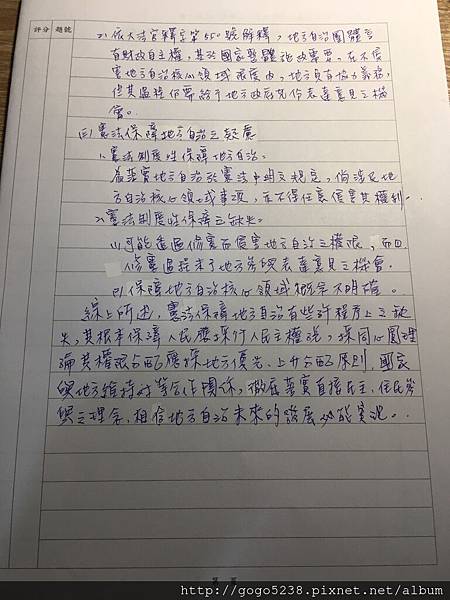 評分 題號
2) 依大法官釋字第550號解釋，地方自治團體享
有財政自主權，基於國家整體施政需要，在不侵
害地方自治核心領域限度內，地方負有協力義務，
但其過程仍要給予地方政府充作表達意見之機
會。
(三)憲法保障地方自治之疑慮
1.憲法制度性保障地方自治。
落實地方自治於憲法中明文規定，倘涉及地
方自治核心領域事項，並不得任意侵害其權利。
2.憲法制度性保障之缺失。
(1)可能透過修憲而侵害地方自治之權限，而且
修憲過程未予地方參與表達意見之機會。
(2)保障地方自治核心領域概念不明確。
綜上所述，憲法保障地方自治有些許程序上之缺
失，其根本保障人民應採行人民主權說，採同心圓理
論其權限分配應採地方優先、上升分配原則，國家
與地方維持對等合作關係，徹底落實直接民主、住民參
與之理念，相信地方自治未來的發展必能實現。
第 頁
http://gogo5238.pixnet.net/album